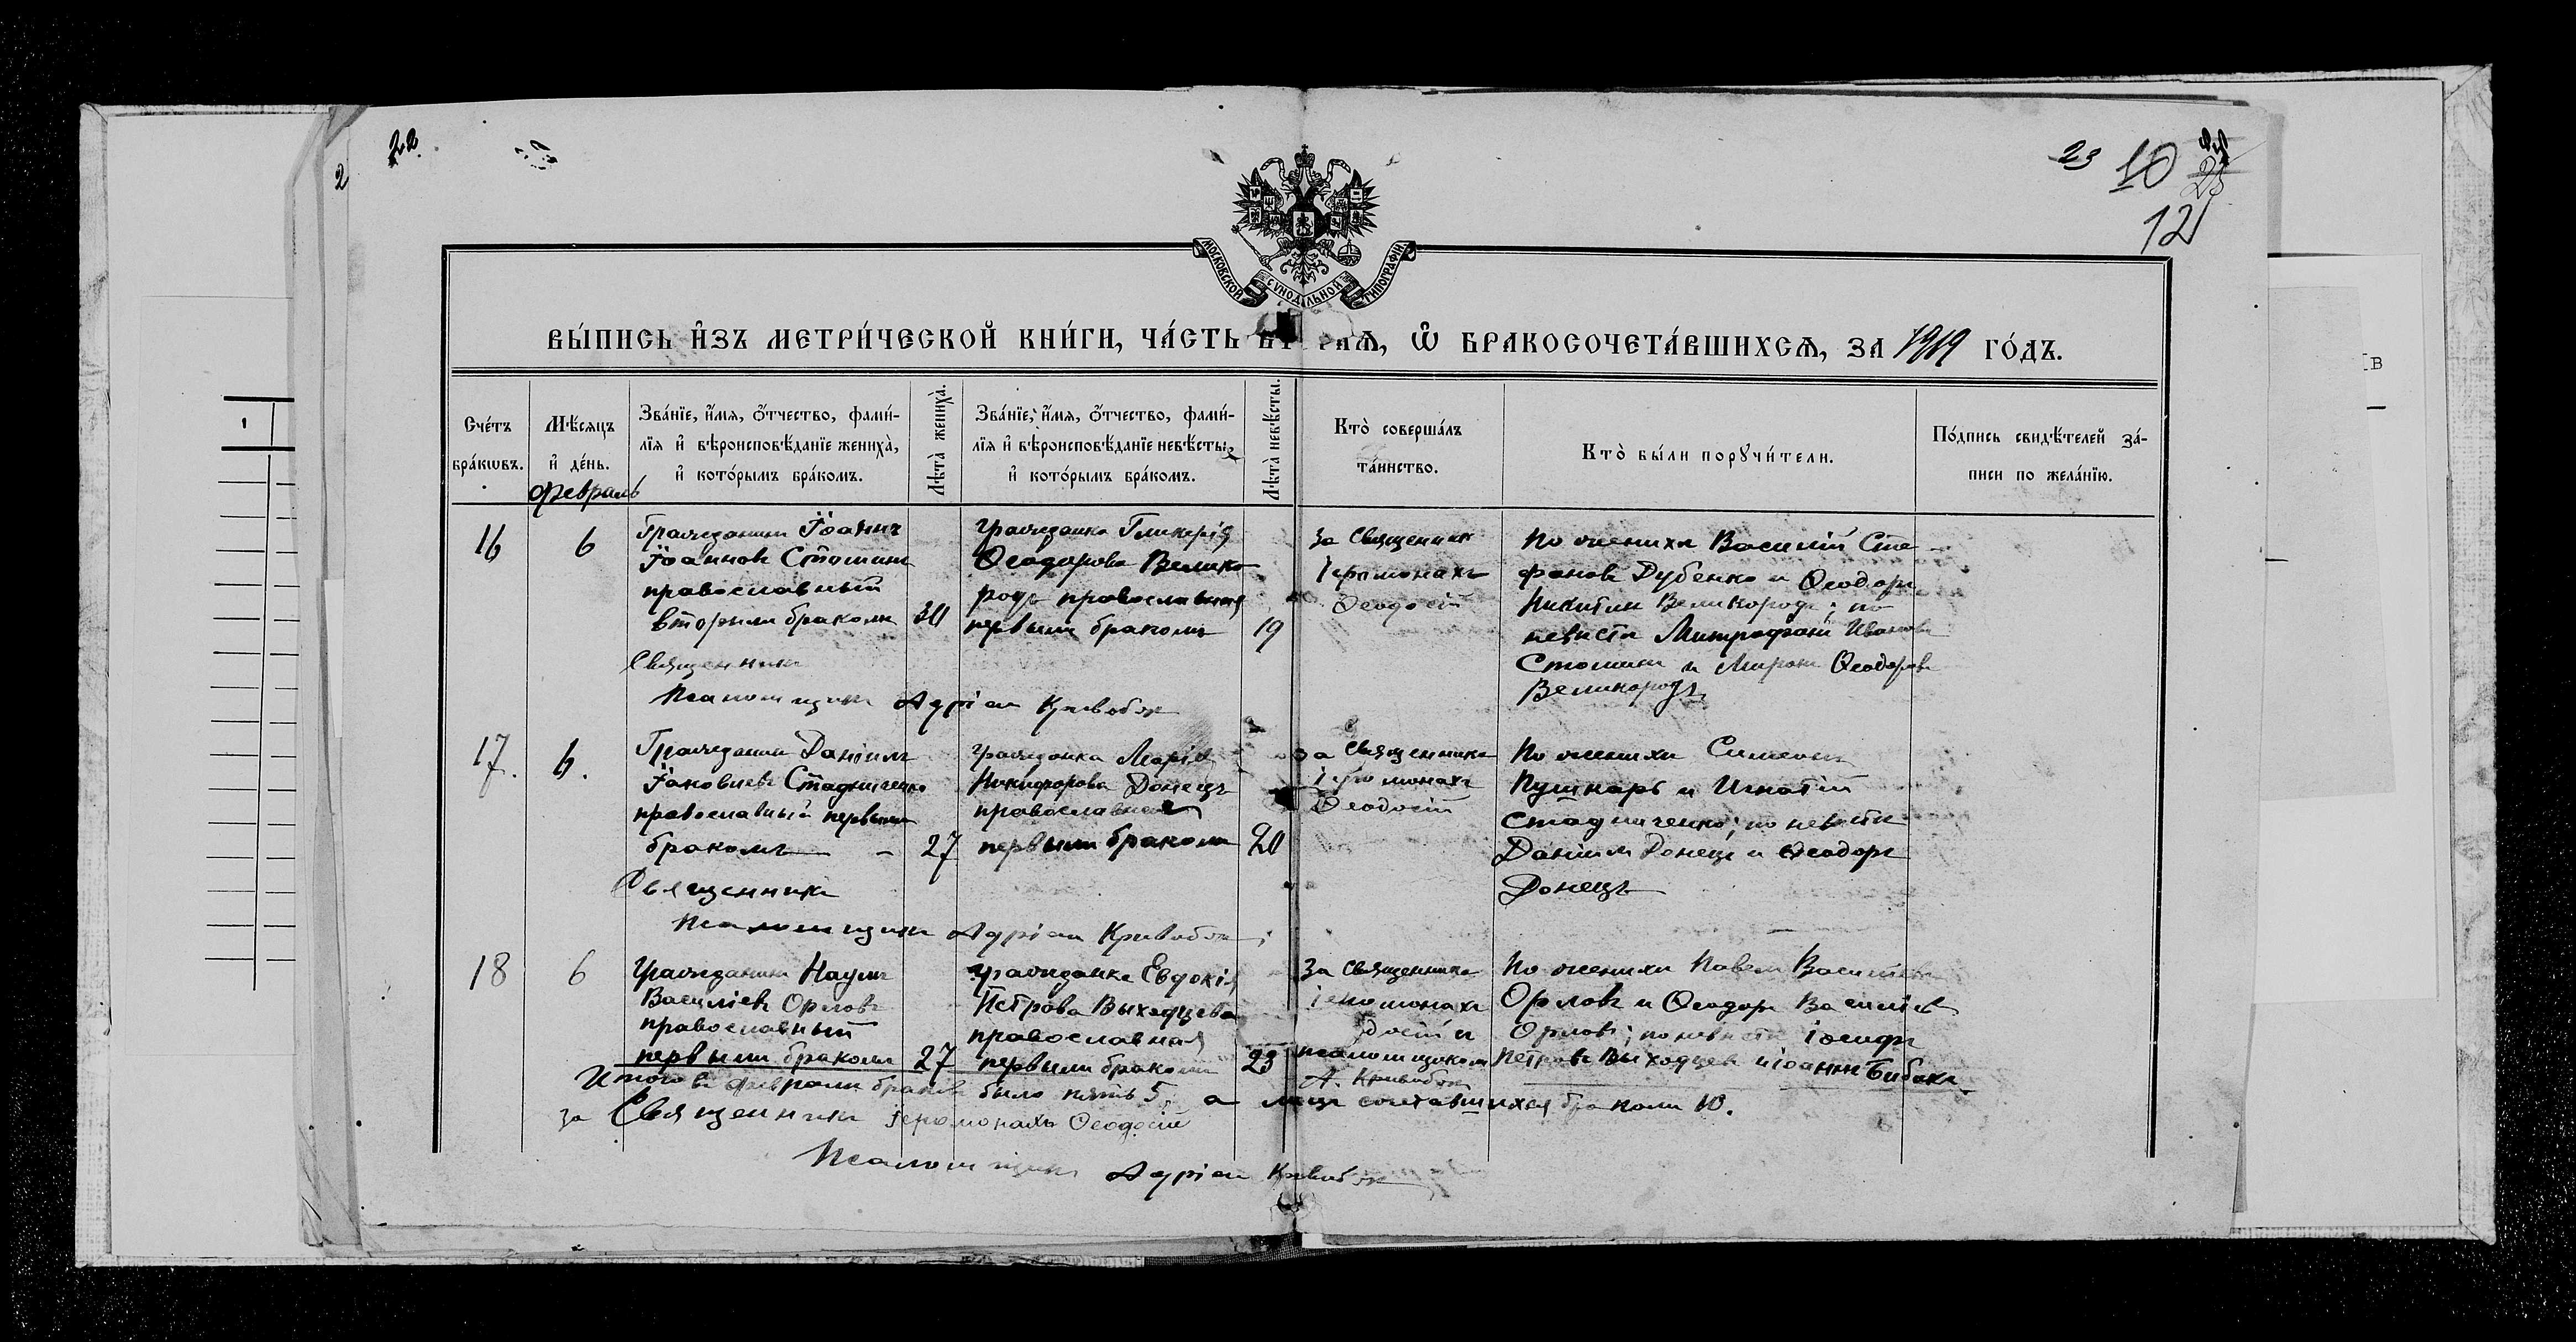 22.
2
23 10 24
25
12
МОСКОВСКОЙ СѴНОДАЛЬНОЙ ТИПОГРАФІИ
ВЫ́ПИСЬ И҆ЗЪ МЕТРИ́ЧЕСКОЙ КНИ́ГИ, ЧА́СТЬ РАѦ, Ѽ БРАКОСОЧЕТА́ВШИХСѦ, ЗА 1919 ГО́ДЪ.
Сче́тъ бра́кѡвъ.
Мѣ́сяцъ и҆ де́нь.
Зва́нїе, и҆́мя, ѻ҆́тчество, фами́лїя и҆ вѣроисповѣ́данїе жениха̀, и҆ кото́рымъ бра́комъ.
Лѣта̀ жениха̀.
Зва́нїе, и҆́мя, ѻ҆́тчество, фами́лїя и҆ вѣроисповѣ́данїе невѣ́сты, и҆ кото́рымъ бра́комъ.
Лѣта̀ невѣ́сты.
Кто̀ соверша́лъ та́инство.
Кто̀ бы́ли порꙋчи́тели.
По́дпись свидѣ́телей за́писи по жела́нїю.
февраль
16
6
Гражданинъ Іоаннъ
Іоанновъ Стомин
православный
вторым браком
30
гражданка Гликерія
Ѳеодорова Велико
родъ православная
первым бракомъ
19
За Священник
Іеромонахъ
Ѳеодосій
По жениха Василій Сте
фановъ Дубенко и Ѳеодоръ
Никитин Великородъ; по
невиста Митрофанъ Иванов
Стомин и Мирон Ѳеодоровъ
Великородъ
Священникъ
Псаломщикъ Адріан Кривобок
17.
6.
Гражданин Даніилъ
Іаковлевъ Стадниченко
православный первым
бракомъ
27
гражданка Марія
Никифорова Донецъ
православная
первым браком
20
за Священника
Іеромонахъ
Ѳеодосій
По жениха Симеонъ
Пушкарь и Игнатій
Стадниченко; по невисти
Даніил Донецъ и Ѳеодоръ
Донецъ
Священникъ
Псаломщикъ Адріан Кривобок
18
6
Гражданинъ Наумъ
Василіевъ Орловъ
православный
первым браком
27
гражданка Евдокія
Петрова Выходцева
православная
первым браком
23
За священника
іеромонахъ
досій и
псаломщиком
А. Кривобок
По жениха Павел Василіевъ
Орловъ и Ѳеодоръ Василіев
Орловъ; по невисти Іосифъ
Петровъ Выходцев и Іоаннъ Бибик
Итого въ феврали браков было пять 5, а лицъ сочетавшихся браком 10.
за Священника Іеромонахъ Ѳеодосій
Псаломщикъ Адріан Кривобок
1
В